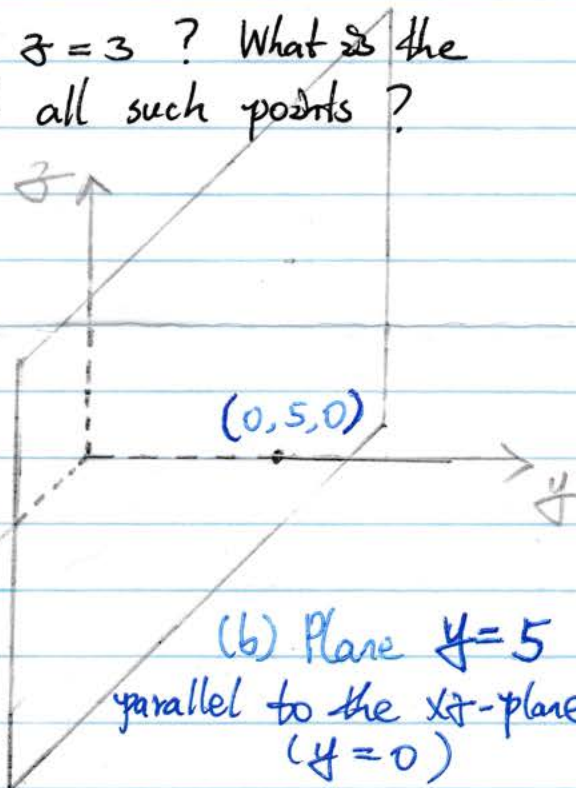 z = 3 ? What is the
all such points ?
z
(0,5,0)
y
(b) Plane y = 5
parallel to the xz-plane
(y = 0)